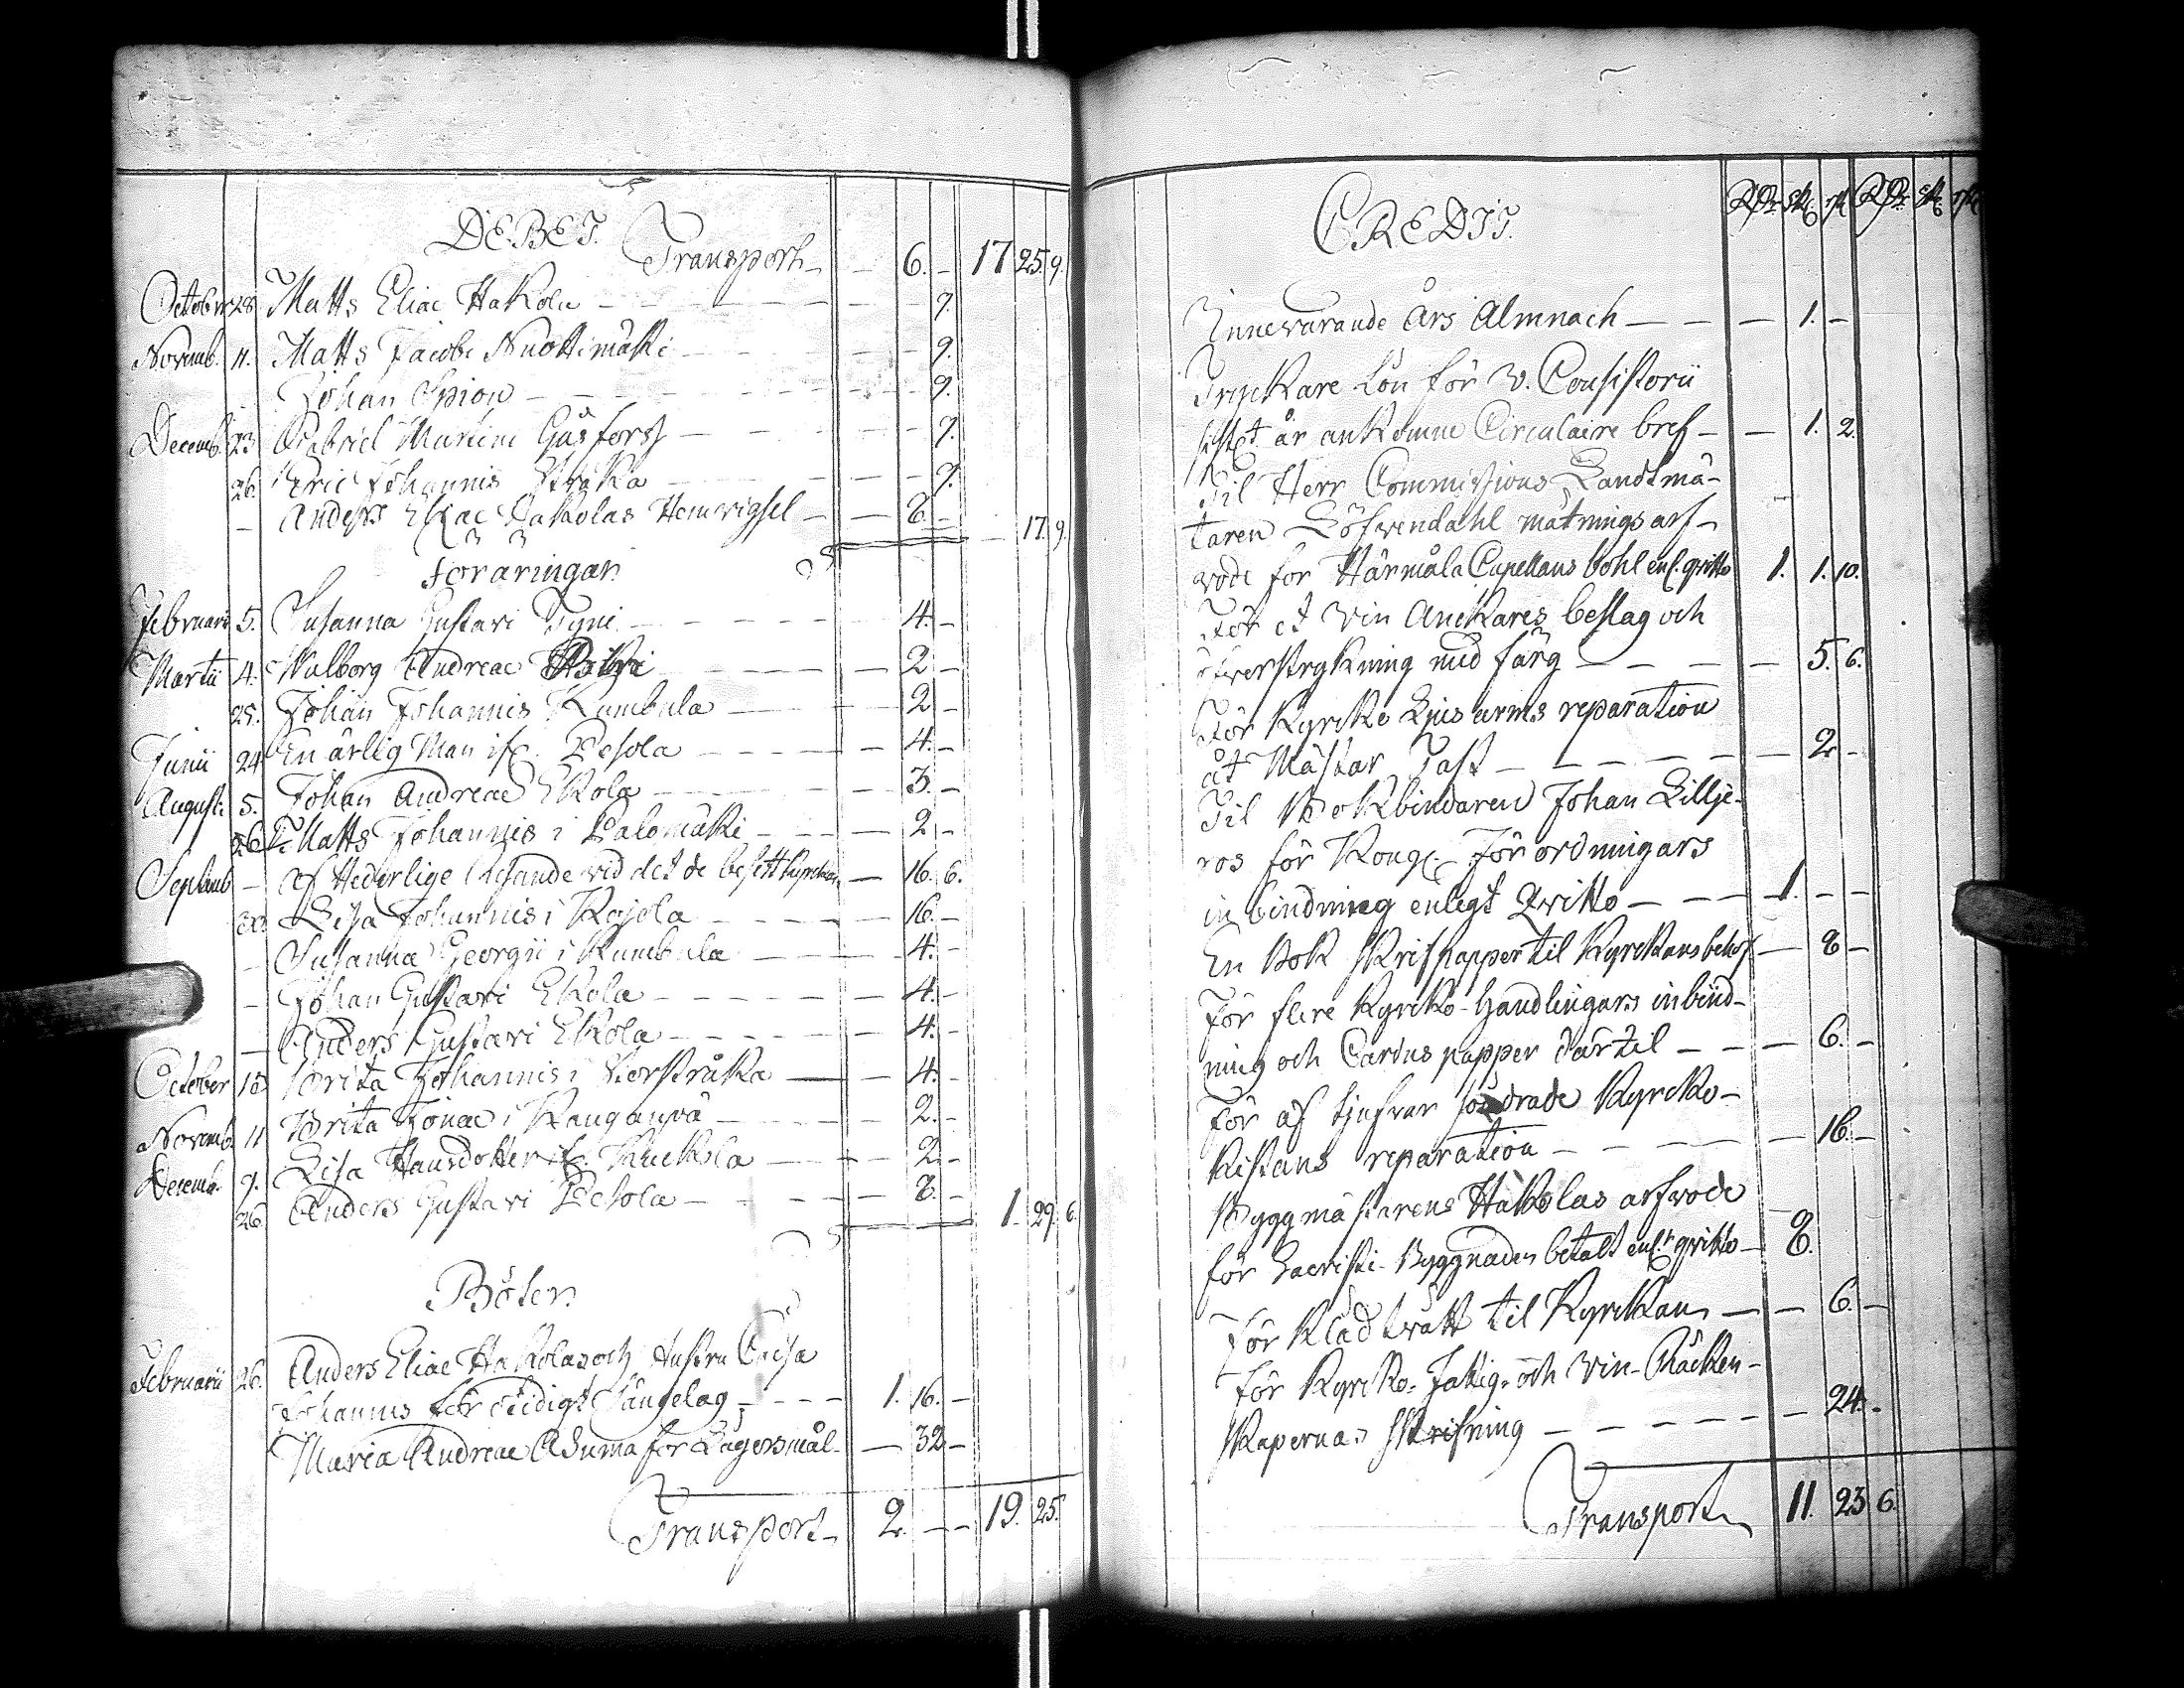 DEBET.
Transport — 6. — 17 25. 9.
October 28. Matts Eliae Hakola — 9.
Novemb. 11. Matts Jacobi Nuottimäki — 9.
Johan Spion — 9.
Decemb. 23 Gabriel Martini Gåsfors — 9.
26. Eric Johannis Stråka — 9.
— Anders Eliae Hakolas Hemvigsel — 6. — 17. 9.
Föräringar.
Februarii 5. Susanna Gustavi Tyni — 4. —
Martii 4. Walborg Andreae — 2 —
25. Johan Johannis Kumbula — 2 —
Junii 24 En ärlig Man if. Pesola — 4. —
Augusti 5. Johan Andreae Ekola — 3. —
26. Matts Johannis i Palomäki — 2 —
Septemb — Af Hederlige Resande vid det de besett kyrckan — 16. 6.
30. Lisa Johannis i Kojola — 16. —
— Susanna Georgii i Kumbula — 4. —
— Johan Gustavi Ekola — 4. —
— Anders Gustavi Ekola — 4. —
October 18 Brita Johannis i Storstråka — 4. —
Novemb. 11 Brita Jonae i Kauganevä — 2. —
Decemb. 9. Lisa Hansdotter if. Kuckola — 2. —
26. Anders Gustavi Pesola — 8. — 1. 29. 6.
Böter.
Februarii 26. Anders Eliae Hakolas och Hustru Caisa
Johannis för otidigt Sängelag — 1. 16. —
Maria Andreae Asuma för Lägersmål — 32 —
Transport — 2. — — 19. 25.
CREDIT.
RDr sk. rst RDr sk. rst
Innevarande Års Almnach — 1. —
Tryckare Lön för V. Consistorii
sistl. år ankomne Circulaire bref — 1. 2.
Til Herr Commissions Landtmä-
taren Löfvendahl mätnings arf-
vode för Härmälä Capellans bohl enl. qvitto 1. 1. 10.
För et vin Anckares beslag och
öfverstrykning med färg — 5. 6.
För Kyrcko Ljus arms reparation
åt Mästar Fast — 2 —
Til Bokbindaren Johan Lillje-
ros för Kongl. Förordningars
inbindning enligt Qvitto — 1. — —
En Bok Skrifpapper til Kyrckans behof — 8 —
För flere Kyrcko-Handlingars inbind-
ning och Cardus papper därtil — 6. —
För af tjufvar söndrade Kyrcko-
kistans reparation — 16. —
Byggmästarens Hakolas arfvode
för Sacristi-Byggnaden betalt enl.t qvitto — 8.
För Klädtvätt til Kyrckan — 6. —
För Kyrcko- Fattig- och Vin-Räcken-
skapernas skrifning — 24. —
Transport 11. 23 6.